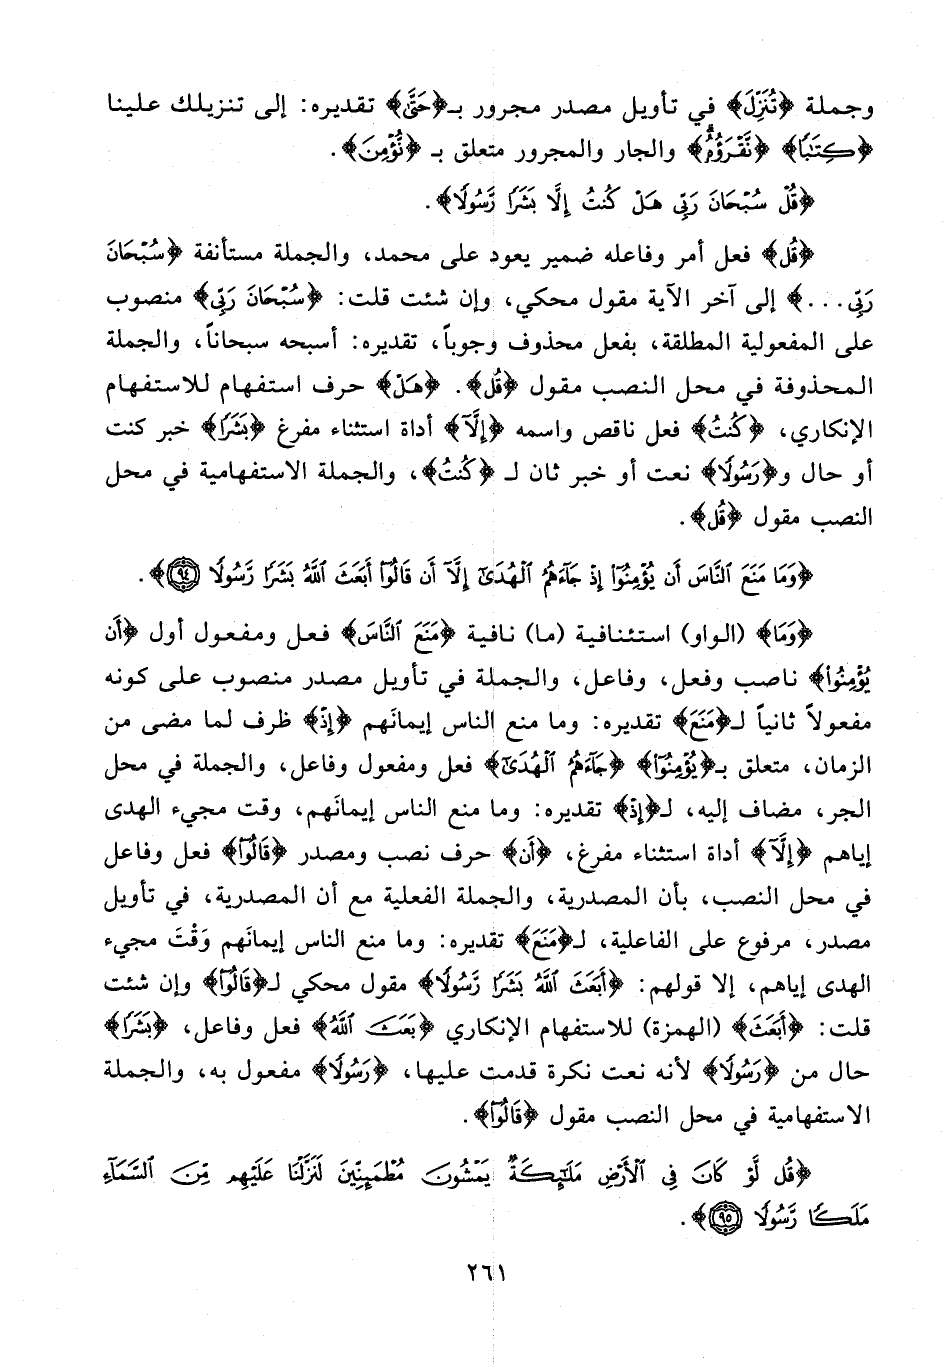 وجملة ﴿تُنَزِّلَ﴾ في تأويل مصدر مجرور بـ﴿حَتَّىٰ﴾ تقديره: إلى تنزيلك علينا
﴿كِتَـٰبًا﴾ ﴿نَّقْرَؤُهُۥ﴾ والجار والمجرور متعلق بـ ﴿نُّؤْمِنَ﴾.
﴿قُلْ سُبْحَانَ رَبِّى هَلْ كُنتُ إِلَّا بَشَرًا رَّسُولًا﴾.
﴿قُل﴾ فعل أمر وفاعله ضمير يعود على محمد، والجملة مستأنفة ﴿سُبْحَانَ
رَبِّى...﴾ إلى آخر الآية مقول محكي، وإن شئت قلت: ﴿سُبْحَانَ رَبِّى﴾ منصوب
على المفعولية المطلقة، بفعل محذوف وجوباً، تقديره: أسبحه سبحاناً، والجملة
المحذوفة في محل النصب مقول ﴿قُل﴾. ﴿هَلْ﴾ حرف استفهام للاستفهام
الإنكاري، ﴿كُنتُ﴾ فعل ناقص واسمه ﴿إِلَّآ﴾ أداة استثناء مفرغ ﴿بَشَرًا﴾ خبر كنت
أو حال و﴿رَسُولًا﴾ نعت أو خبر ثان لـ ﴿كُنتُ﴾، والجملة الاستفهامية في محل
النصب مقول ﴿قُل﴾.
﴿وَمَا مَنَعَ ٱلنَّاسَ أَن يُؤْمِنُوٓا۟ إِذْ جَآءَهُمُ ٱلْهُدَىٰٓ إِلَّآ أَن قَالُوٓا۟ أَبَعَثَ ٱللَّهُ بَشَرًا رَّسُولًا ٩٤﴾.
﴿وَمَا﴾ (الواو) استئنافية (ما) نافية ﴿مَنَعَ ٱلنَّاسَ﴾ فعل ومفعول أول ﴿أَن
يُؤْمِنُوٓا۟﴾ ناصب وفعل، وفاعل، والجملة في تأويل مصدر منصوب على كونه
مفعولاً ثانياً لـ﴿مَنَعَ﴾ تقديره: وما منع الناس إيمانَهم ﴿إِذْ﴾ ظرف لما مضى من
الزمان، متعلق بـ﴿يُؤْمِنُوٓا۟﴾ ﴿جَآءَهُمُ ٱلْهُدَىٰٓ﴾ فعل ومفعول وفاعل، والجملة في محل
الجر، مضاف إليه، لـ﴿إِذْ﴾ تقديره: وما منع الناس إيمانَهم، وقت مجيء الهدى
إياهم ﴿إِلَّآ﴾ أداة استثناء مفرغ، ﴿أَن﴾ حرف نصب ومصدر ﴿قَالُوٓا۟﴾ فعل وفاعل
في محل النصب، بأن المصدرية، والجملة الفعلية مع أن المصدرية، في تأويل
مصدر، مرفوع على الفاعلية، لـ﴿مَنَعَ﴾ تقديره: وما منع الناس إيمانَهم وَقْتَ مجيء
الهدى إياهم، إلا قولهم: ﴿أَبَعَثَ ٱللَّهُ بَشَرًا رَّسُولًا﴾ مقول محكي لـ﴿قَالُوٓا۟﴾ وإن شئت
قلت: ﴿أَبَعَثَ﴾ (الهمزة) للاستفهام الإنكاري ﴿بَعَثَ ٱللَّهُ﴾ فعل وفاعل، ﴿بَشَرًا﴾
حال من ﴿رَسُولًا﴾ لأنه نعت نكرة قدمت عليها، ﴿رَسُولًا﴾ مفعول به، والجملة
الاستفهامية في محل النصب مقول ﴿قَالُوٓا۟﴾.
﴿قُل لَّوْ كَانَ فِى ٱلْأَرْضِ مَلَـٰٓئِكَةٌ يَمْشُونَ مُطْمَئِنِّينَ لَنَزَّلْنَا عَلَيْهِم مِّنَ ٱلسَّمَآءِ
مَلَكًا رَّسُولًا ٩٥﴾.
٢٦١